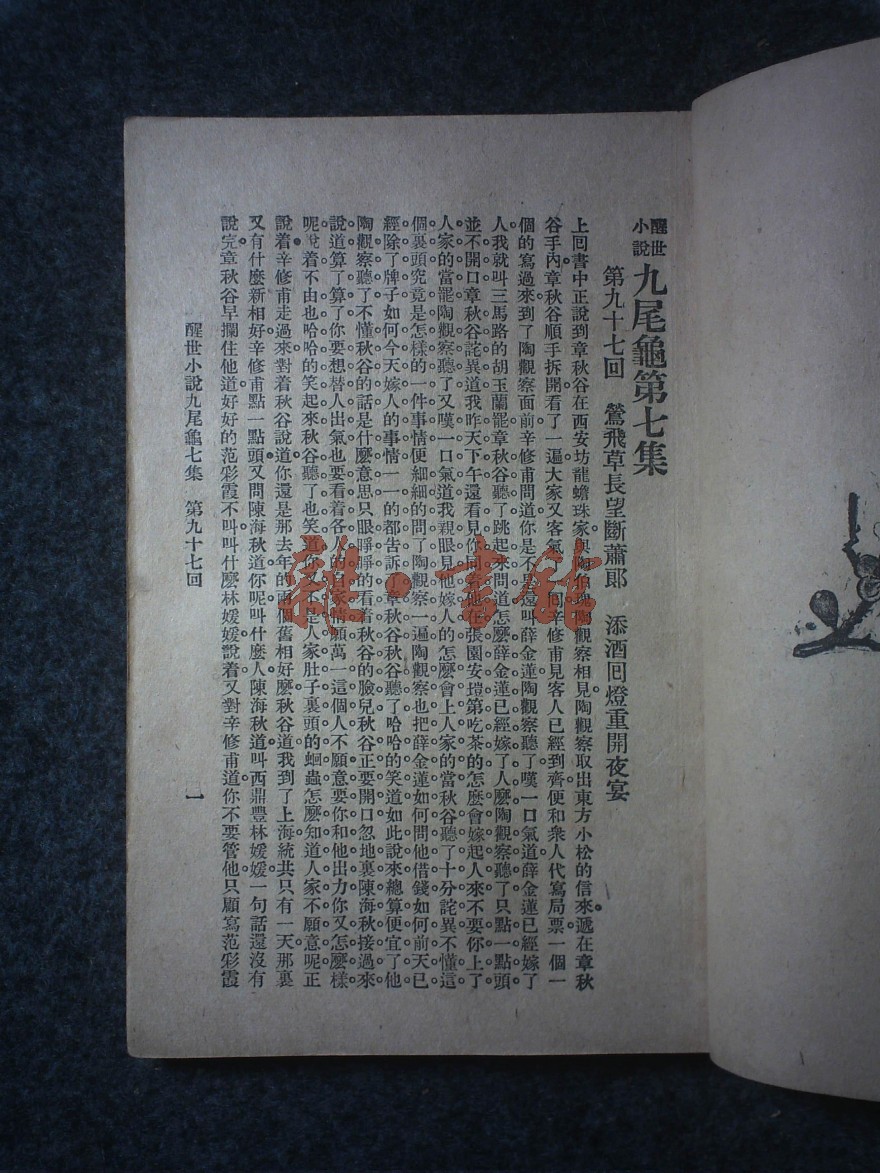 醒世小說 九尾龜第七集
第九十七回 鶯飛草長望斷蕭郎 添酒回燈重開夜宴
上回書中正說到章秋谷在西安坊龍蟾珠家與陶伯瑰陶觀察相見。陶觀察取出東方小松的信來。遞在章秋
谷手內。章秋谷順手拆開看了一遍。大家又客氣一回。辛修甫見客人已經到齊。便和衆人代寫局票。一個一
個的寫過來。到了陶觀察面前。辛修甫問道。你是不是還叫薛金蓮。陶觀察聽了。嘆一口氣道。薛金蓮已經嫁了
人。我就叫三馬路的胡玉蘭罷。章秋谷聽了。跳起來問道。怎麼薛金蓮已經嫁了人麼。陶觀察聽了。只點一點頭
並不開口。章秋谷詫異道。我昨天下午還看見你同着他在張園安塏第吃茶的。怎麼會嫁起人來。不要你上了
人家的當罷。陶觀察聽了。又嘆一口氣道。我親眼見他嫁人的。怎麼會上人家的當。秋谷聽了。十分詫異。不懂這
個裏頭究竟是怎樣的一件事情。便細細的問了陶觀察一遍。陶觀察也把薛金蓮如何問他借錢。如何前天已
經除了牌子。如何今天嫁人的事情。一一的都告訴了章秋谷。秋谷聽了。哈哈的笑道。如此說來。總算便宜了他
陶觀察聽了。不懂秋谷的話是什麼意思。只眼睜睜的看着秋谷的臉兒。秋谷正要開口。忽地裏陳海秋接過來
說道。算了算了。你要想替人出氣。也要看着各人的自家情願。萬一這個人不願意要你和他出力。你又怎麼樣
呢。說着不由也哈哈的笑起來。秋谷聽了。也笑道。你又不是人家肚子裏頭的蛔蟲。怎麼知道人家不願意呢。正
說着。辛修甫走過來。對着秋谷說道。你還是那去年的兩個舊相好麼。秋谷道。我到了上海。統共只有一天。那裏
又有什麼新相好。辛修甫點一點頭。又問陳海秋道。你呢。叫什麼人。陳海秋道。叫西鼎豐林媛媛。一句話還沒有
說完。章秋谷早攔住他道。好好的范彩霞不叫。叫什麼林媛媛。說着又對辛修甫道。你不要管他。只顧寫范彩霞
醒世小說九尾龜七集 第九十七回 一
雜·書館